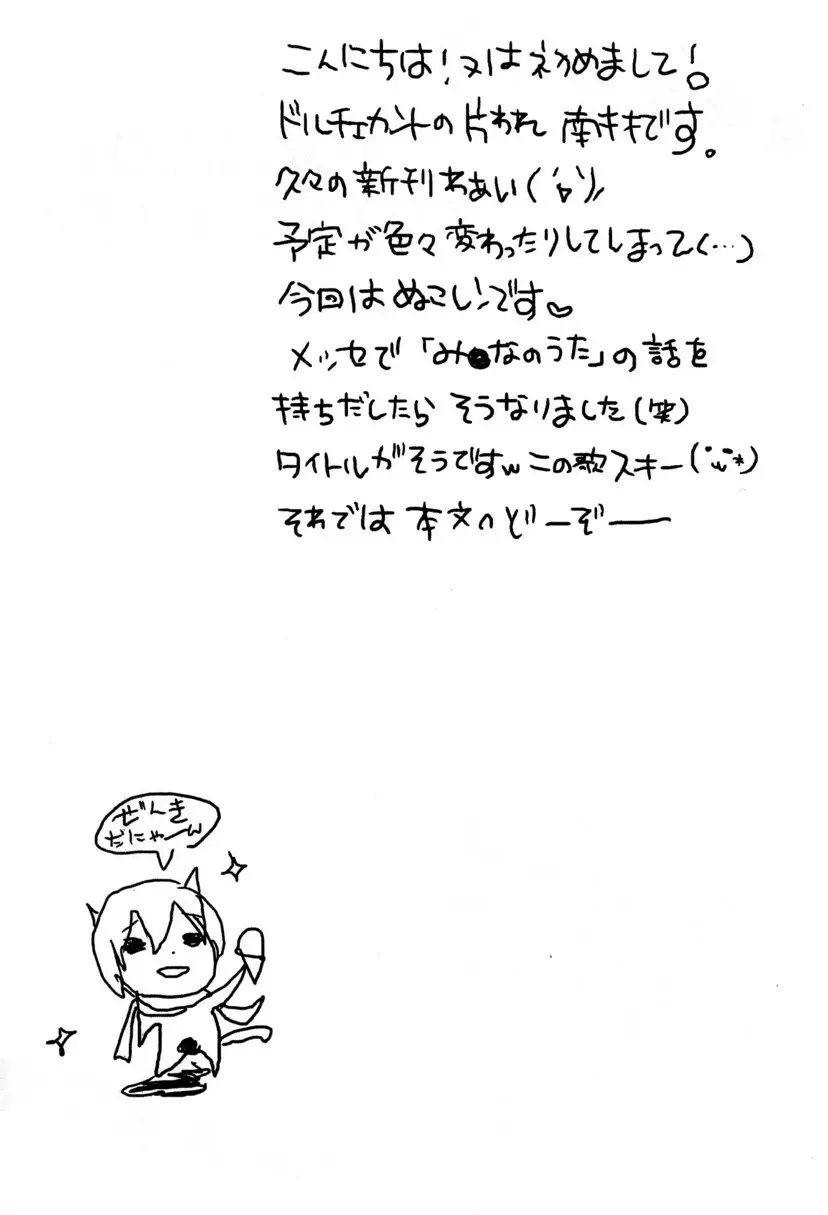 こんにちは!又は初めまして!
ドルチェカントの片われ 南キキです。
久々の新刊わあい(´ワ`)ノ
予定が色々変わったりしてしまって(…)
今回はぬこレンです♡
メッセで「み●なのうた」の話を
持ちだしたら そうなりました(笑)
タイトルがそうですw この歌スキー(˙ω˙*)
それでは 本文へどーぞー
ぜんき
だにゃーw